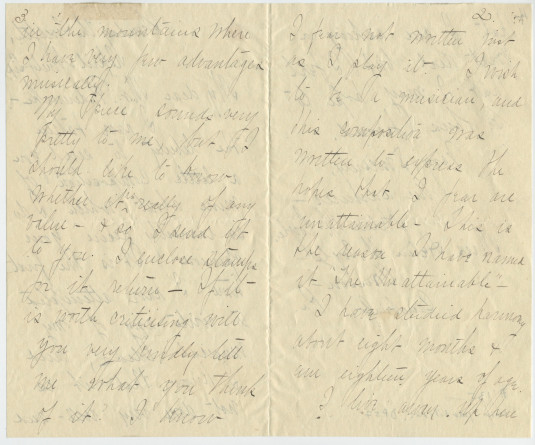 2.
I fear not written just
as I play it - I wish
to be a musician, and
this composition was
written to express the
hopes that I fear are
unattainable - This is
the reason I have named
it "The Unattainable" -
"I have studied harmony
about eight months &
am eighteen years of age.
I live away up here
3
in the mountains where
I have very few advantages
musically.
My piece sounds very
pretty to me, but I
should like to know
whether it really of any
value - & so I send it
to you. I enclose stamps
for its return - If it
is worth criticising will
you very kindly tell
me what you think
of it? I know